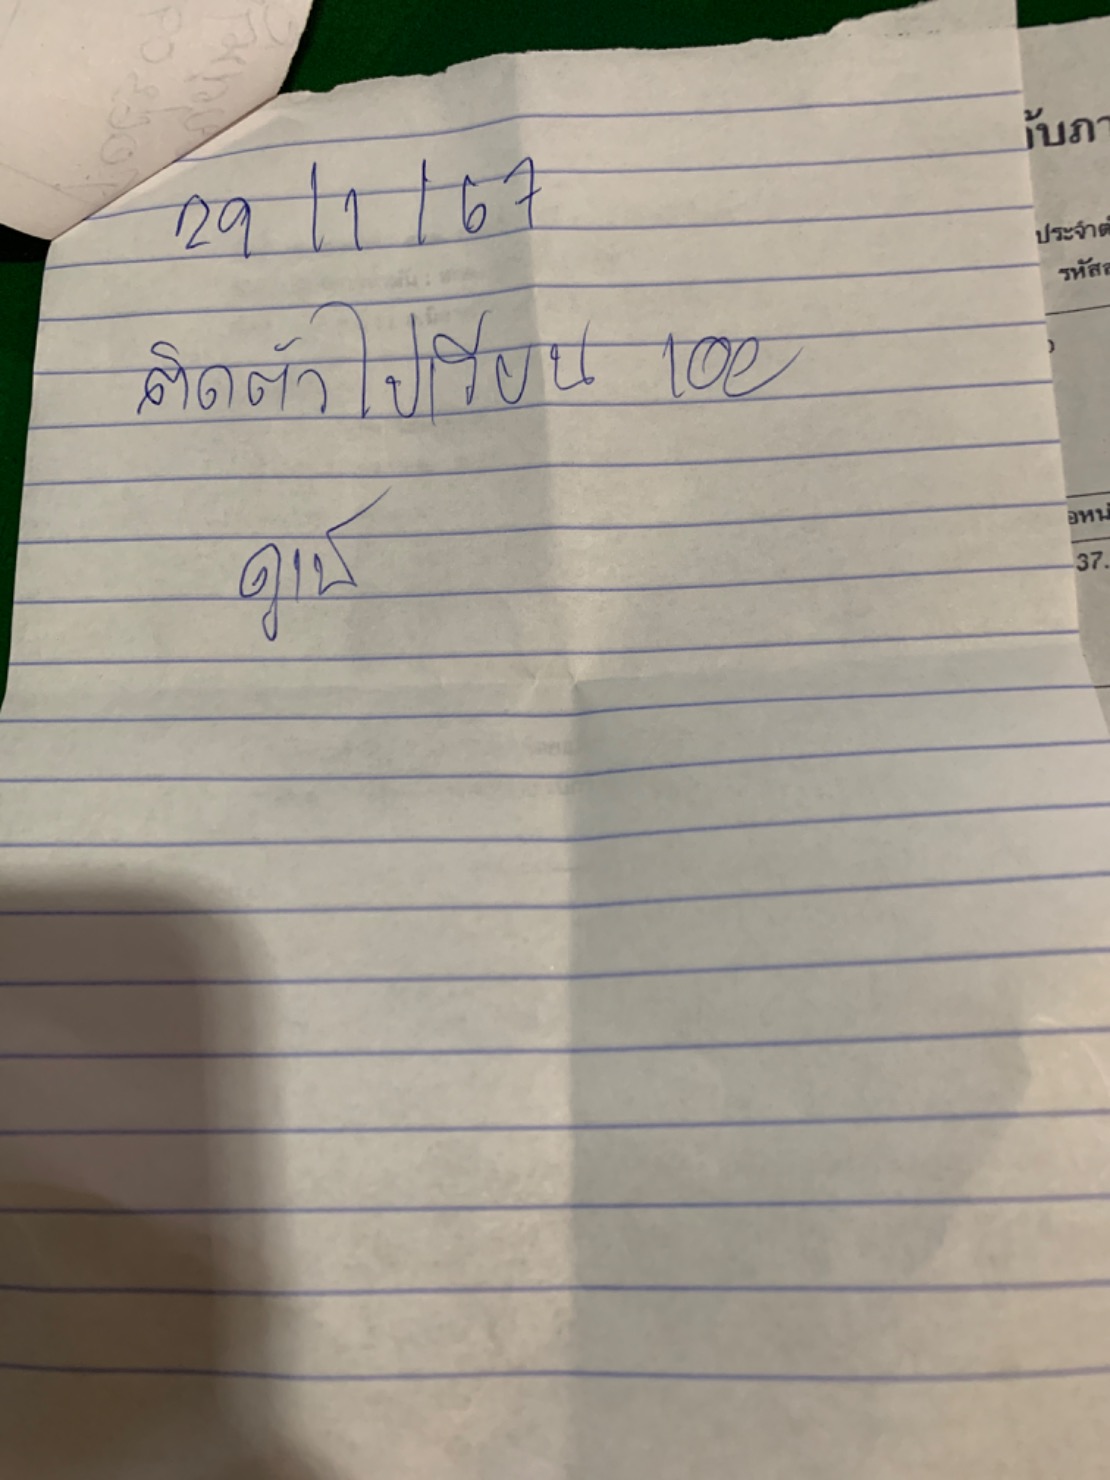 29/1/67
ติดตัวไปเรียน 100
ดูเช่
กับภา
ประจำต
รหัส
37.